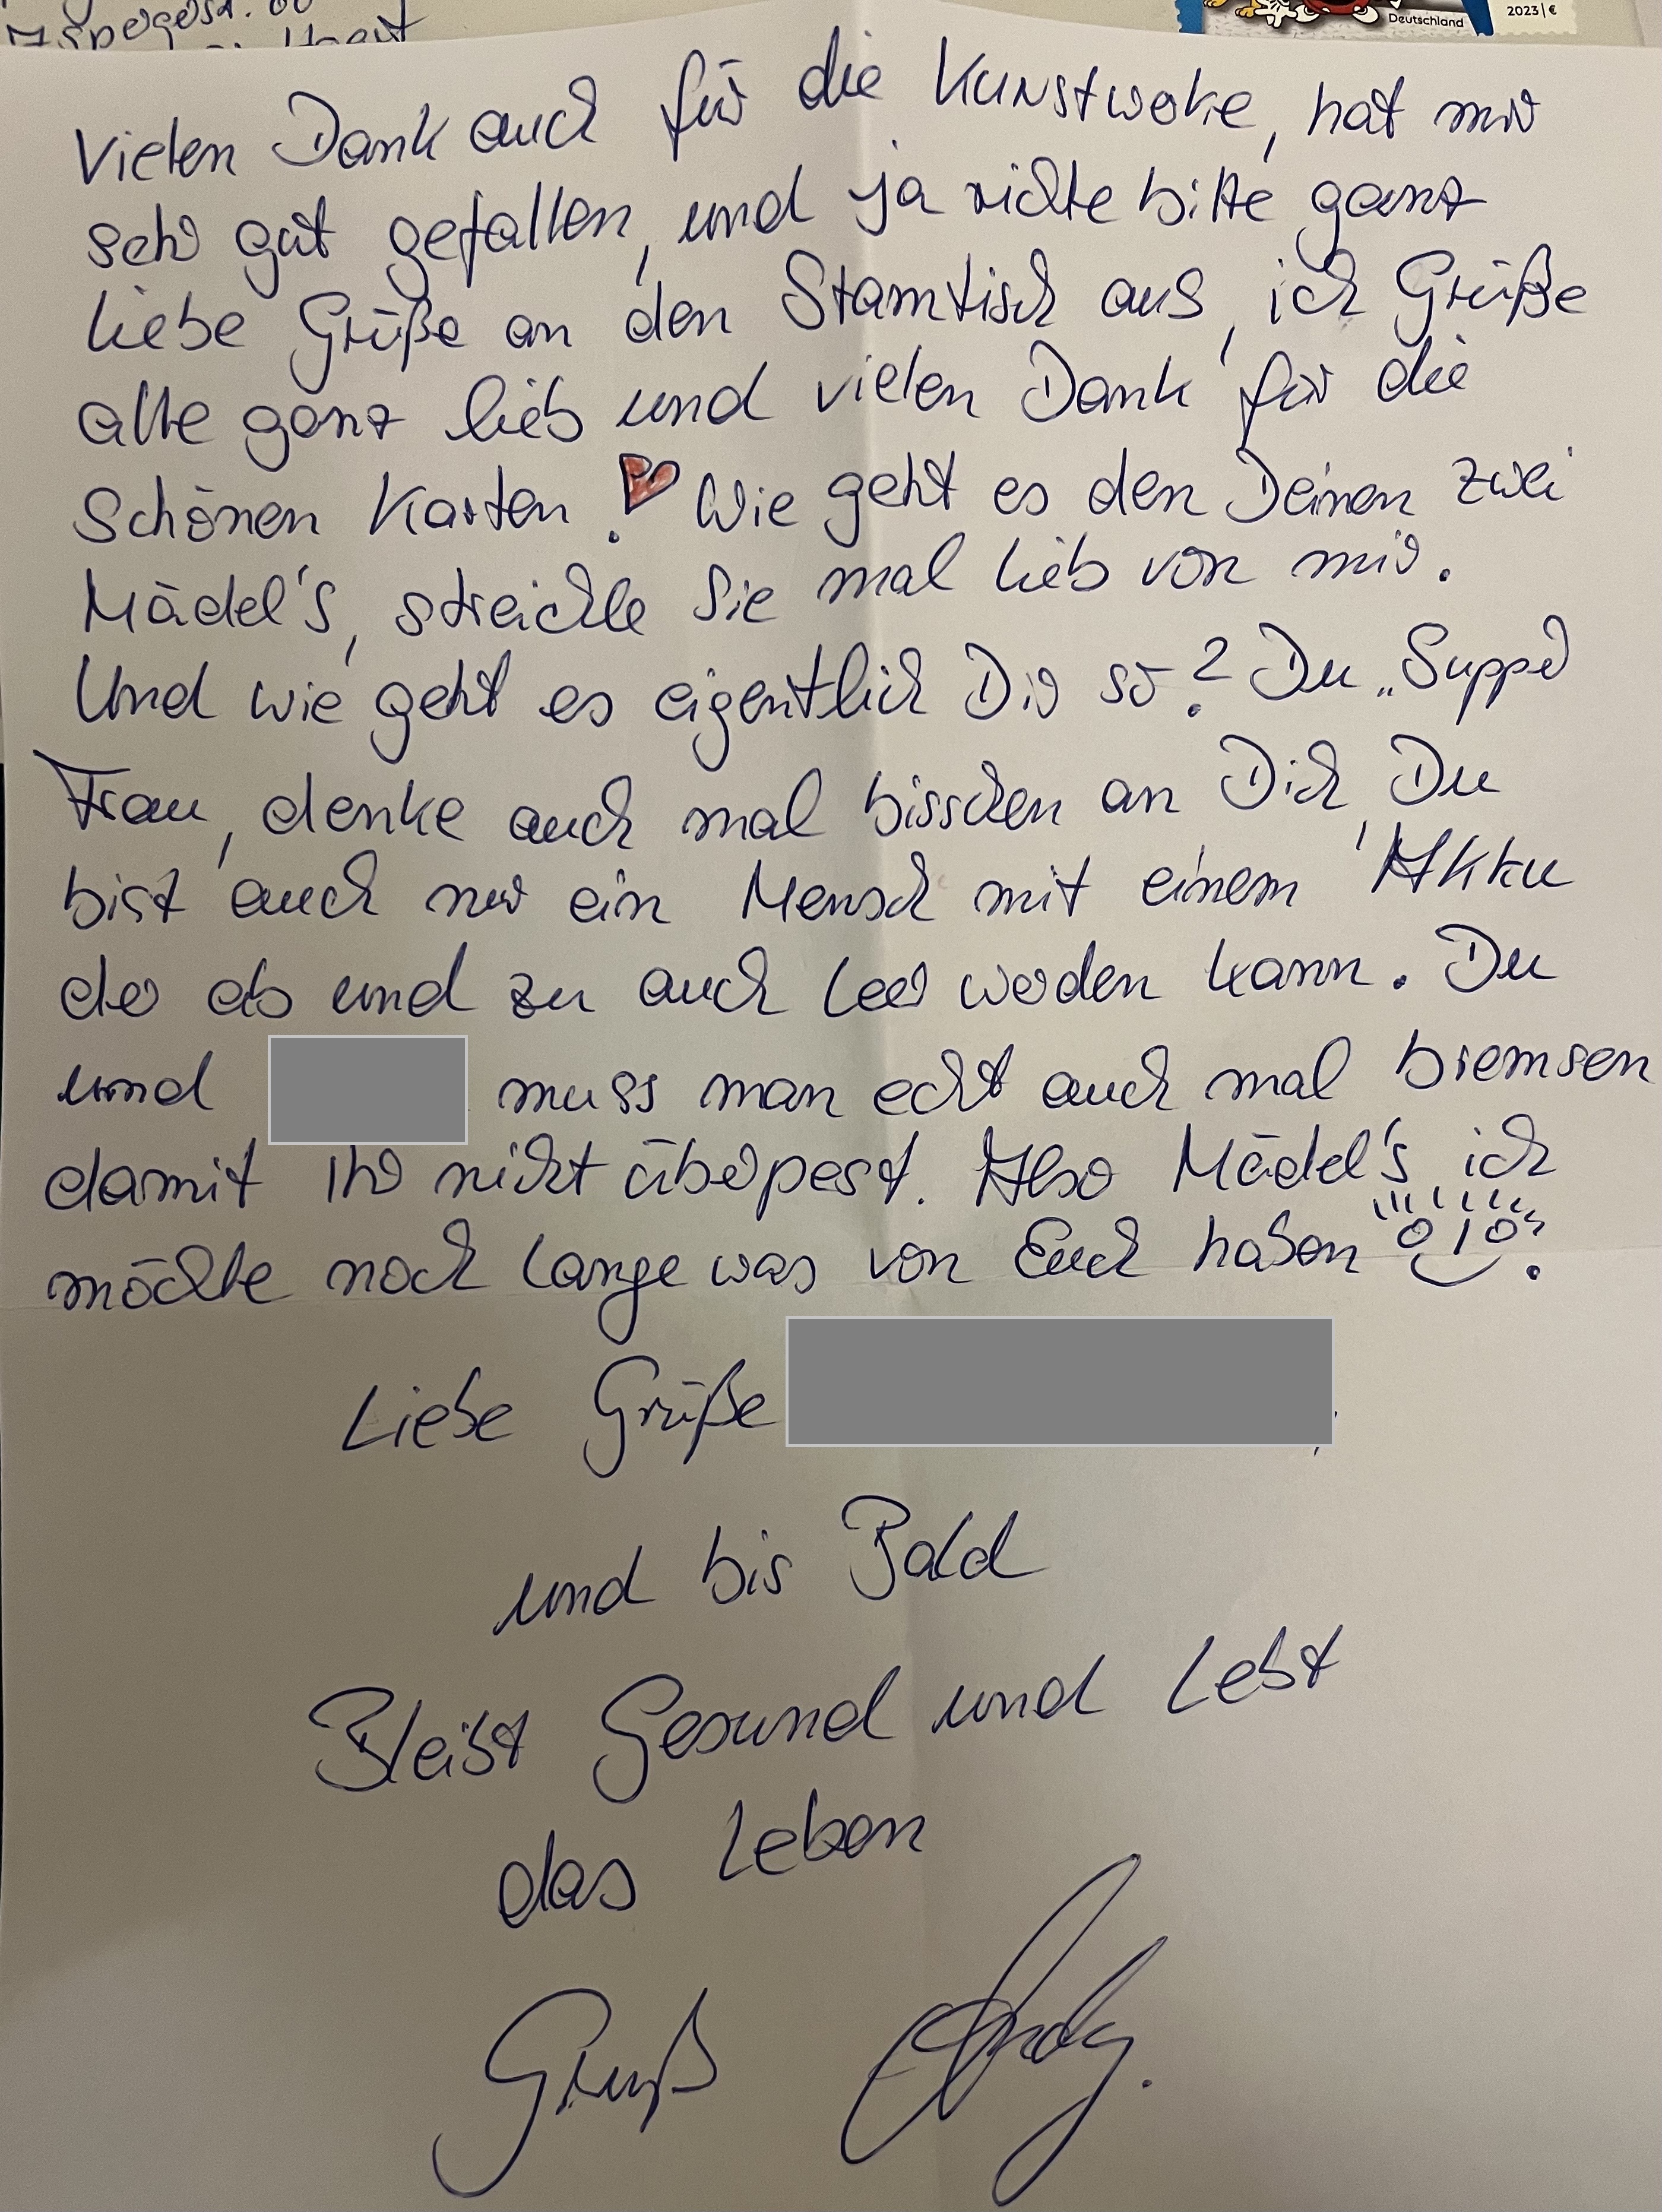 Deutschland
2023 | €
Vielen Dank auch für die Kunstwerke, hat mir
sehr gut gefallen, und ja richte bitte ganz
liebe Grüße an den Stamtisch aus, ich Grüße
alle ganz lieb und vielen Dank für die
Schönen Karten! Wie geht es den Deinen zwei
Mädel's, streichle Sie mal lieb von mir.
Und wie geht es eigentlich Dir so? Du „Supper
Frau, denke auch mal bisschen an Dich, Du
bist auch nur ein Mensch mit einem Akku
der ab und zu auch Leer werden kann. Du
und muss man echt auch mal bremsen
damit Ihr nicht überpest. Also Mädel's ich
möchte noch lange was von Euch haben.
Liebe Grüße
und bis Bald
Bleibt Gesund und Lebt
das Leben
Gruß Andy.